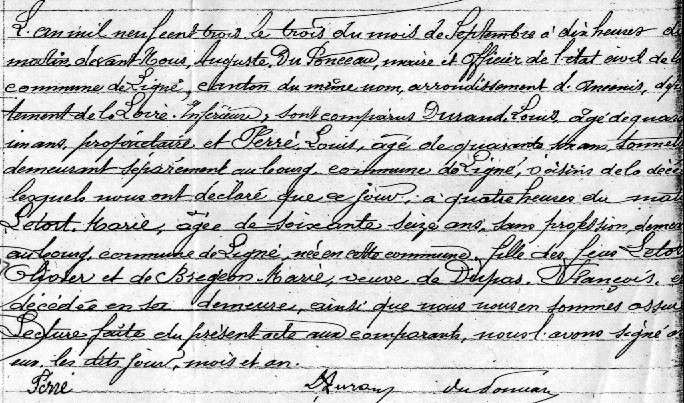 L'an mil neuf cent trois le trois du mois de Septembre à dix heures du
matin devant Nous, Auguste Du Ponceau, maire et officier de l'état civil de la
commune de Ligné, canton du même nom, arrondissement d'Ancenis, dépar
tement de la Loire-Inférieure, sont comparus Durand Louis, âgé de quara
un ans, propriétaire et Ferré, Louis, âgé de quarante ans, tonneli
demeurant séparément au bourg, commune de Ligné, voisins de la décé
lesquels nous ont déclaré que ce jour, à quatre heures du mat
Letort, Marie, âgée de soixante seize ans, sans profession, demeu
au bourg, commune de Ligné, née en cette commune, fille des feus Letor
Olivier et de Bregeon Marie, veuve de Dupas, François, est
décédée en sa demeure, ainsi que nous nous en sommes assur
Lecture faite du présent acte aux comparants, nous l'avons signé a
eux les dits jour, mois et an.
Ferré Durand du Ponceau